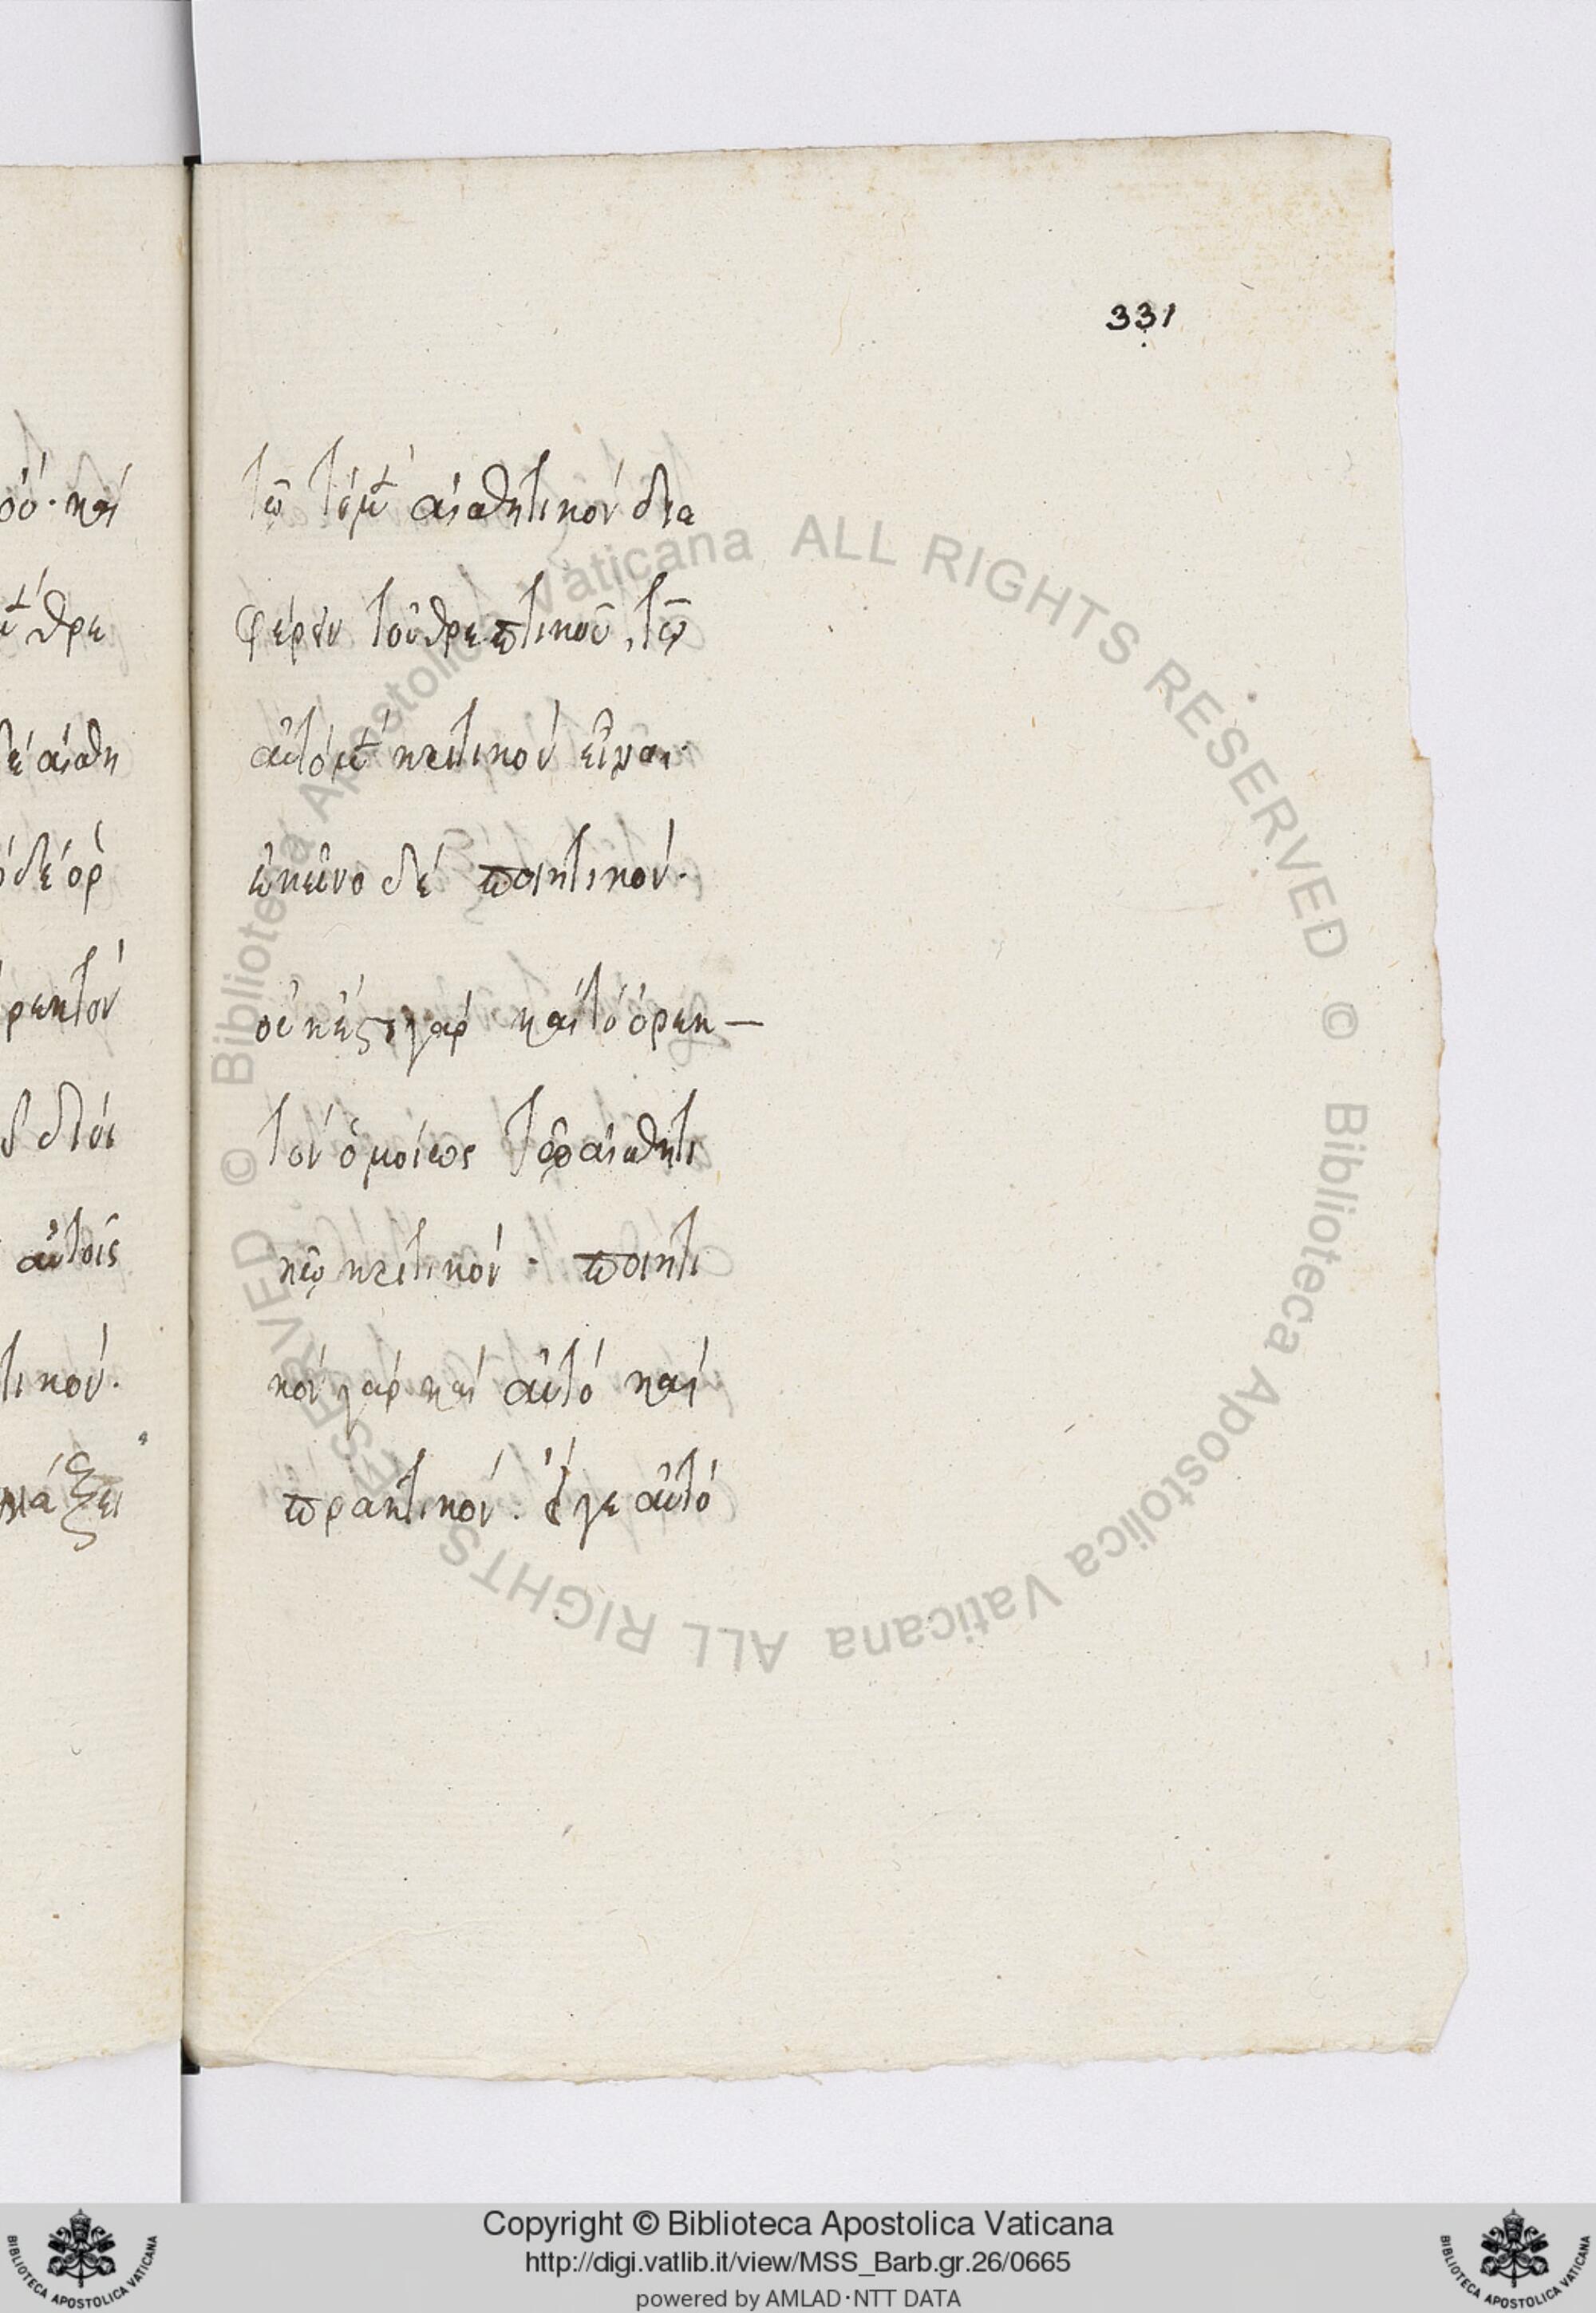 331
ου· καὶ
μὲν θρε
δὲ αἰσθη
ὸ δὲ ὀρ
ρεκτὸν
διὸ
αὐτοῖς
τικόν.
τάξει
τῶ τὸ μὲν αἰσθητικὸν δια
φέρειν τοῦ θρεπτικοῦ, τῶ
αὐτὸ μὲν κριτικὸν εἶναι·
ἐκεῖνο δὲ ποιητικόν·
οὐκ ἔστι γὰρ καὶ τὸ ὀρεκ—
τὸν ὁμοίως τῶ αἰσθητι
κῶ κριτικόν· ποιητι
κὸν γὰρ καὶ αὐτὸ καὶ
πρακτικόν· εἴ γε αὐτὸ
© Biblioteca Apostolica Vaticana ALL RIGHTS RESERVED © Biblioteca Apostolica Vaticana ALL RIGHTS RESERVED
Copyright © Biblioteca Apostolica Vaticana
http://digi.vatlib.it/view/MSS_Barb.gr.26/0665
powered by AMLAD·NTT DATA
BIBLIOTECA APOSTOLICA VATICANA
BIBLIOTECA APOSTOLICA VATICANA